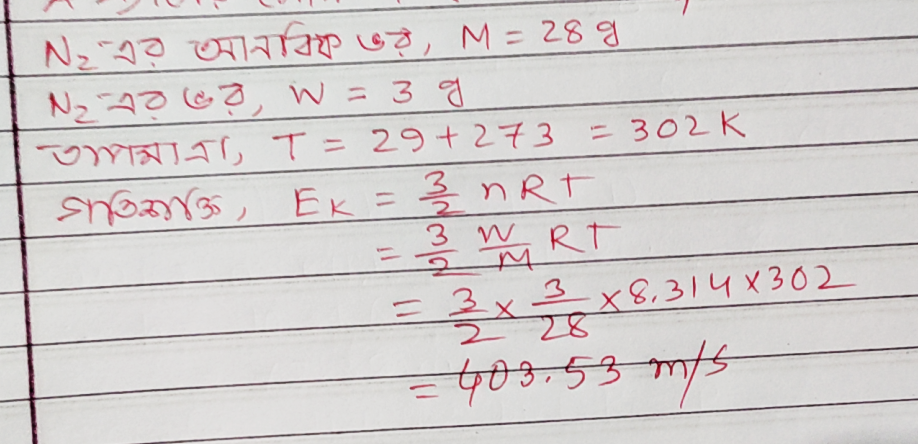 N₂-এর আনবিক ভর, M = 28 g
N₂-এর ভর, W = 3 g
তাপমাত্রা, T = 29 + 273 = 302 K
গতিশক্তি, EK = 3/2 nRT
= 3/2 W/M RT
= 3/2 × 3/28 × 8.314 × 302
= 403.53 m/s